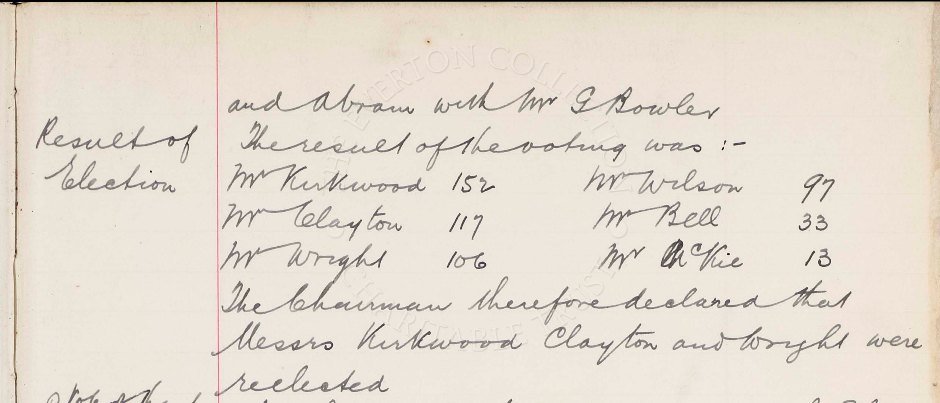 and Abram with Mr G Bowler
Result of
Election
The result of the voting was :-
Mr Kirkwood 152 Mr Wilson 97
Mr Clayton 117 Mr Bell 33
Mr Wright 106 Mr McKie 13
The Chairman therefore declared that
Messrs Kirkwood Clayton and Wright were
reelected